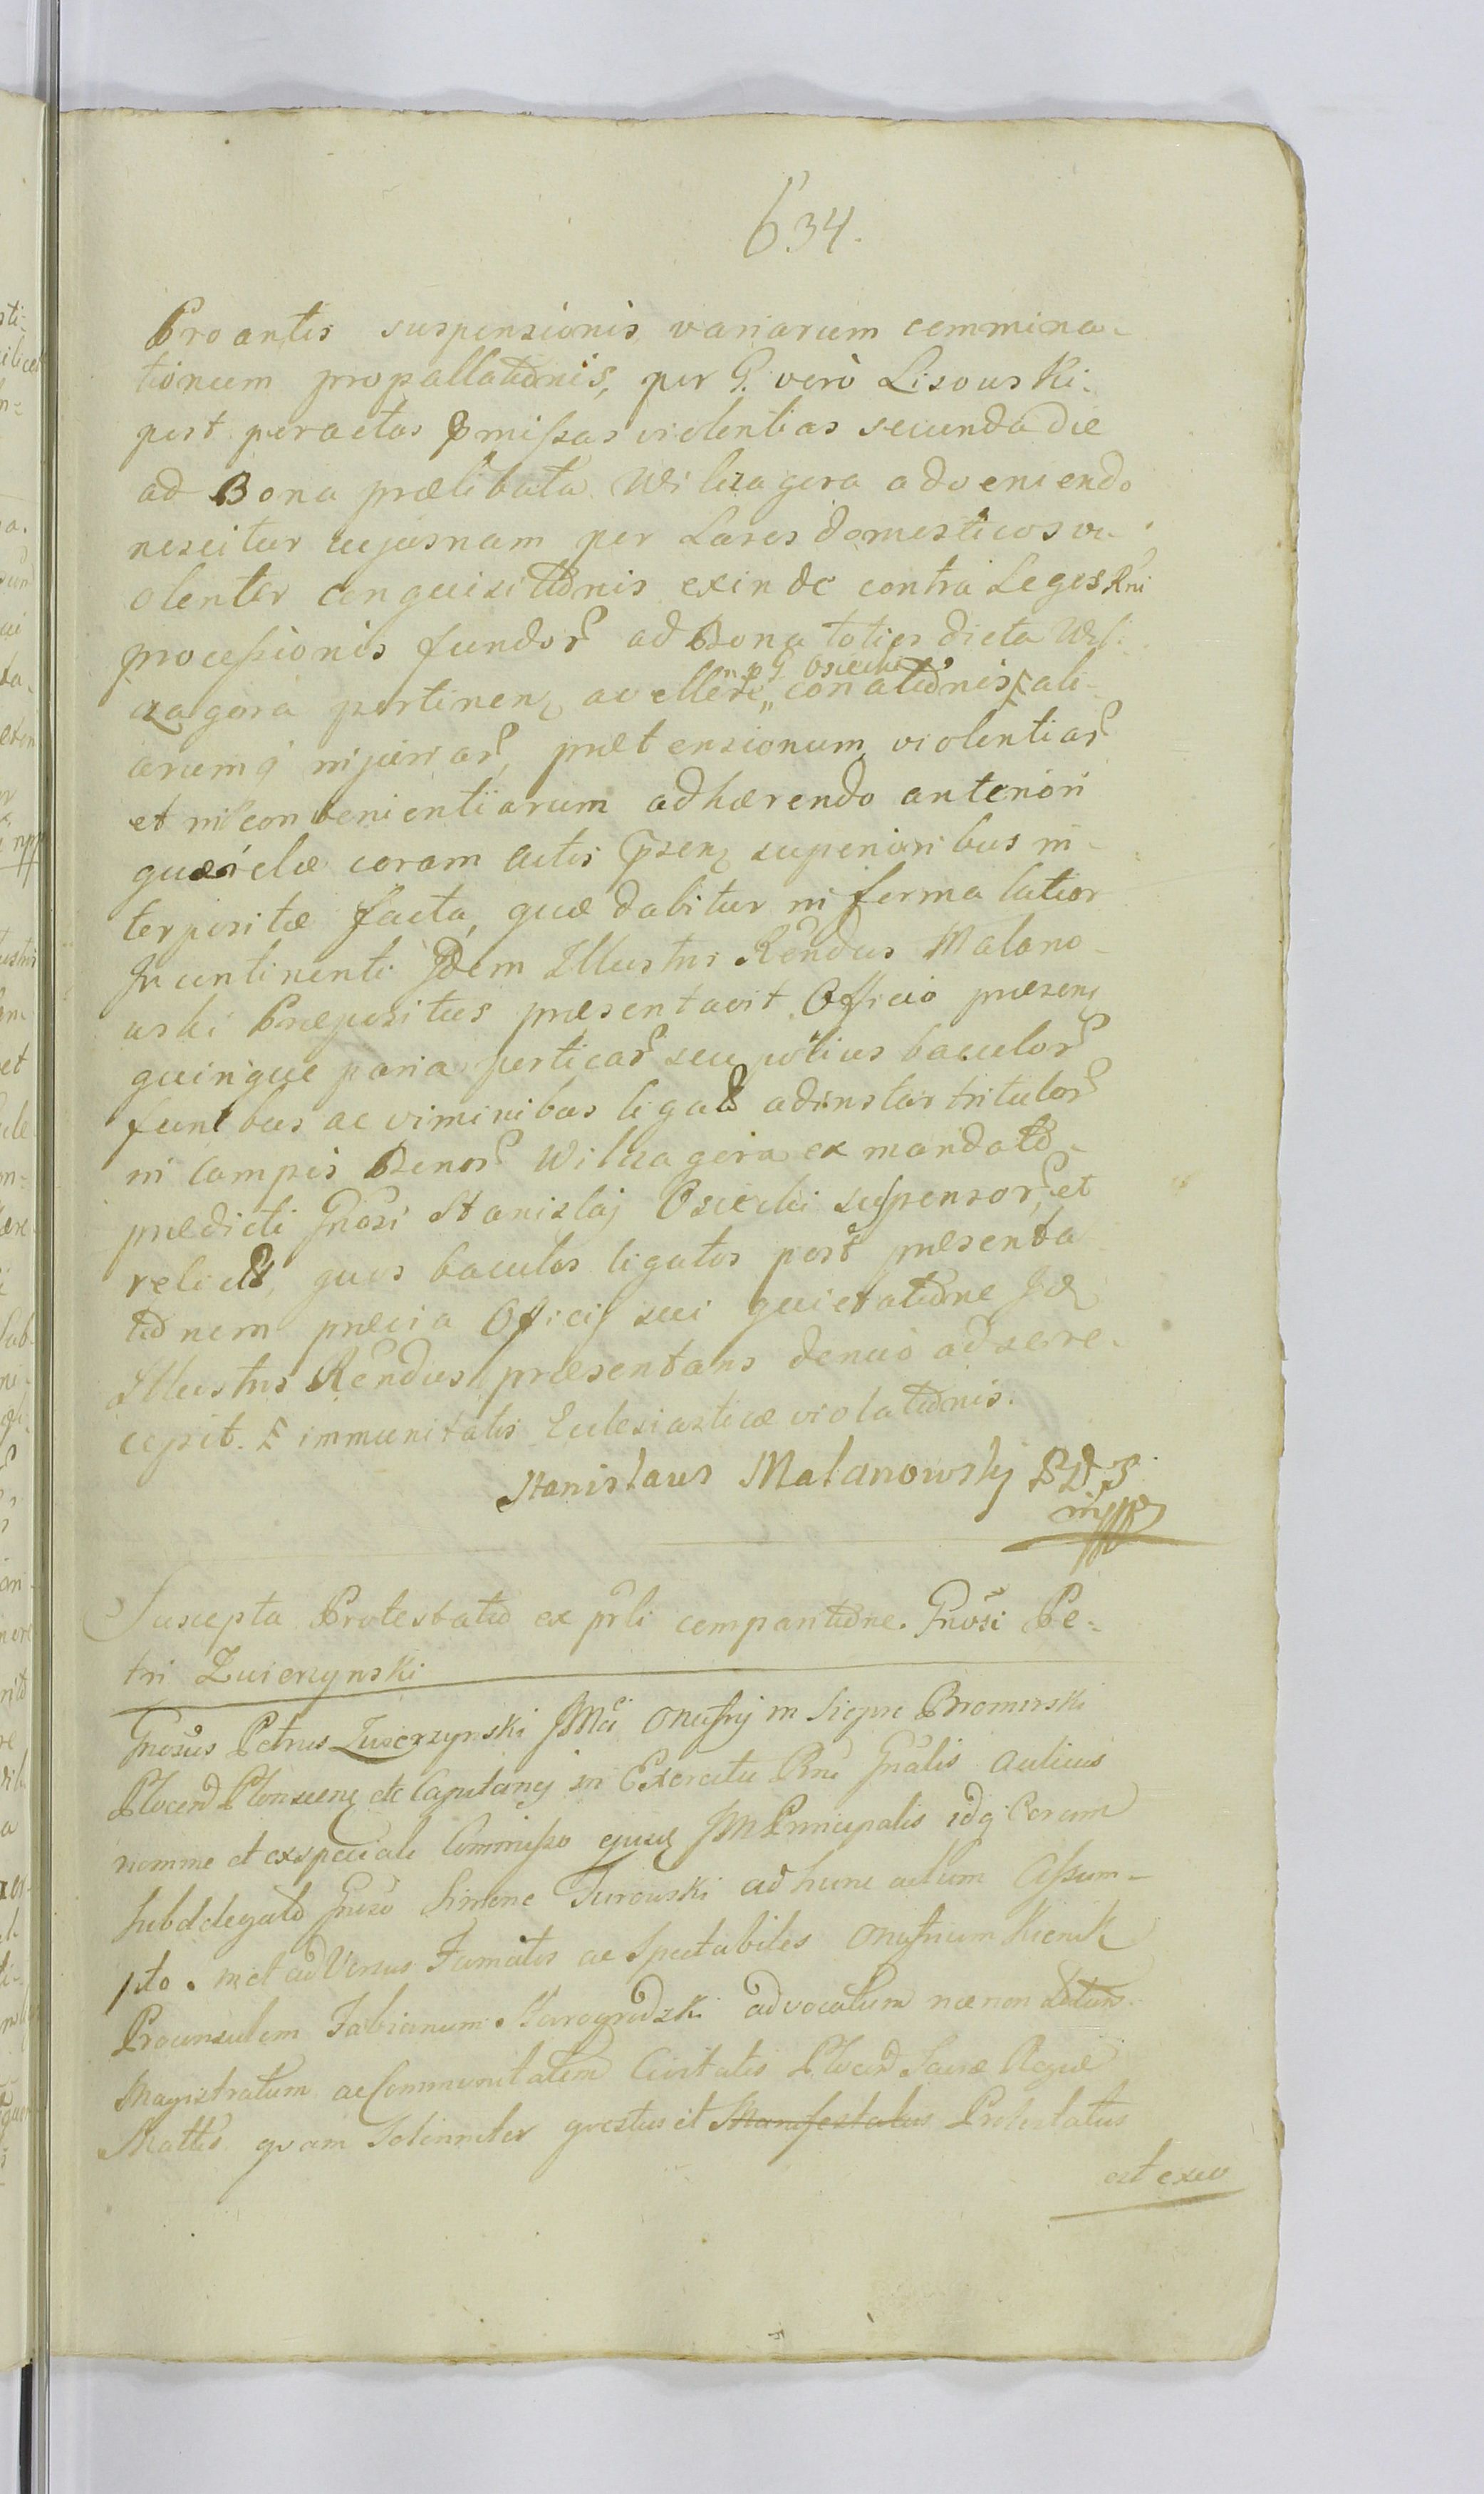 634.
Proantis suspensionis variarum commina-
tionum propallatõnis, per G. verò Lisouski
post peractas pmissas violentias secunda die
ad Bona prælibata Wilczagora adveniendo
nescitur cujusnam per Lares domesticos vi-
olenter conquisitõnis exinde contra Leges Rni
processionis fundor ad Bona toties dicta Wil-
czagora pertinen avelleri conatõnis ali-
G Osiecki
arumq injuriar, prætensionum violentiar
et inconvenientiarum adhærendo anteriori
quærelæ coram Actis psen superioribus in-
terpositæ facta, quæ dabitur in forma latior
Incontinenti Idem Illustris Rendus Malano-
uski Præpositus præsentavit Officio præsen
quinque paria perticar seu potius baculor
funibus ac viminibus ligat adinstar tritulor
in Campis Bonor Wilczagora ex mandato
prædicti Gnosi Stanislaj Osiecki suspensor, et
relict, quos baculos ligatos post præsenta
tõnem prævia Officij sui quietatõne Id
Illustris Rendus præsentans denuò ad se re-
cepit. immunitatis Ecclesiasticæ violatõnis.
Stanislaus Malanowskj
mpp
Suscepta Protestatio ex prli comparitõne. Gnosi Pe-
tri Zwierzynski
Gnosus Petrus Zwierzynski JMci Onufrij in Siepre Bromirski
Plocen Plonscen etc Capitanej in Exercitu Rni Gnalis Aulicus
nomine et ex speciali Commisso ejusd JM Principalis idq Coram
Subdelegato Gnoso Simone Turowski ad hunc actum Assum-
pto. in et adversus Famatos ac Spectabiles Onufrium Kienik
Proconsulem Fabianum Starogrodzki advocatum necnon totum
Magistratum ac Communitatem Civitatis Plocen Sacræ Regiæ
Mattis quam Solenniter questus et Manifestatus Protestatus
est exeo